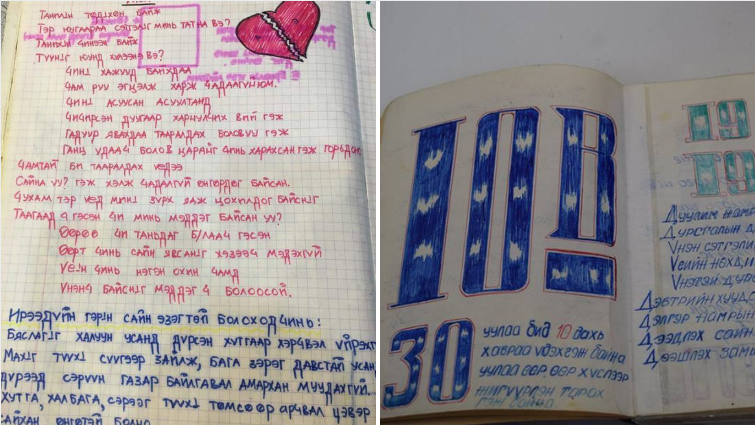 Танилын төдийхөн байж
Тэр юугаараа сэтгэлийг минь татна вэ?
Танилын чинээн байж
Түүнийг юунд хүлээнэ вэ?
Чиний хажууд байхдаа
Чам руу эгцэлж харж чадаагүй юм.
Чиний асуусан асуултанд
Чичирсэн дуугаар хариулчих вий гэж
Гадуур явахдаа тааралдах боловуу гэж
Ганц удаач болов царайг чинь харахсан гэж горьдсон
Чамтай би тааралдах үедээ
Сайн уу? гэж хэлж чадалгүй өнгөрдөг байсан.
Чухам тэр үед миний зүрх яаж цохилдог байсныг
Таагаад ч гэсэн чи минь мэддэг байсан уу?
Өөрөө чи таньдаг б/лаа ч гэсэн
Өөрт чинь сайн явсаныг хэзээч мэдэхгүй
Үеийн чинь нэгэн охин чамд
Үнэнч байсныг мэддэг ч болоосой.
Ирээдүйн гэрийн сайн эзэгтэй болоход чинь:
Бяслагийг халуун усанд дүрсэн хутгаар хэрчвэл үйрэхгүй
Махыг түүхий сүүгээр зайлж, бага зэрэг давстай усанд
дүрээд сэрүүн газар байлгавал амархан муудахгүй.
Хутга, халбага, сэрээг түүхий төмсөөр арчвал цэвэр
сайхан өнгөтэй болно
10В
30 уулаа бид 10 дахь
хавраа үдэхгэж байна
уулаа өөр өөр хүслээр
жигүүрлэн тарах
гэж байна
19
19
Дуулим намр
Дурсгалын д
Үнэн сэтгэлий
Үеийн нөхд
Үнэтэй дурс
Дэвтрийн хууд
Дэлгэр намрын
Дээдлэх сайн
Дээшлэх зам